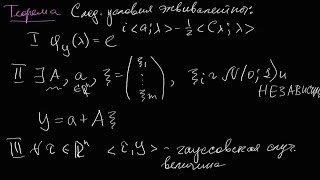 Теорема След. условия эквивалентны:
I φ_y(λ) = e^{i<a;λ> - 1/2<Cλ;λ>}
II ∃ A, a ∈ ℝⁿ, ξ = (ξ₁ ⋮ ξₘ), ξᵢ ~ N(0;1) и
НЕЗАВИСИ
y = a + Aξ
III ∀ τ ∈ ℝⁿ <τ, y> - гауссовская случ.
величина